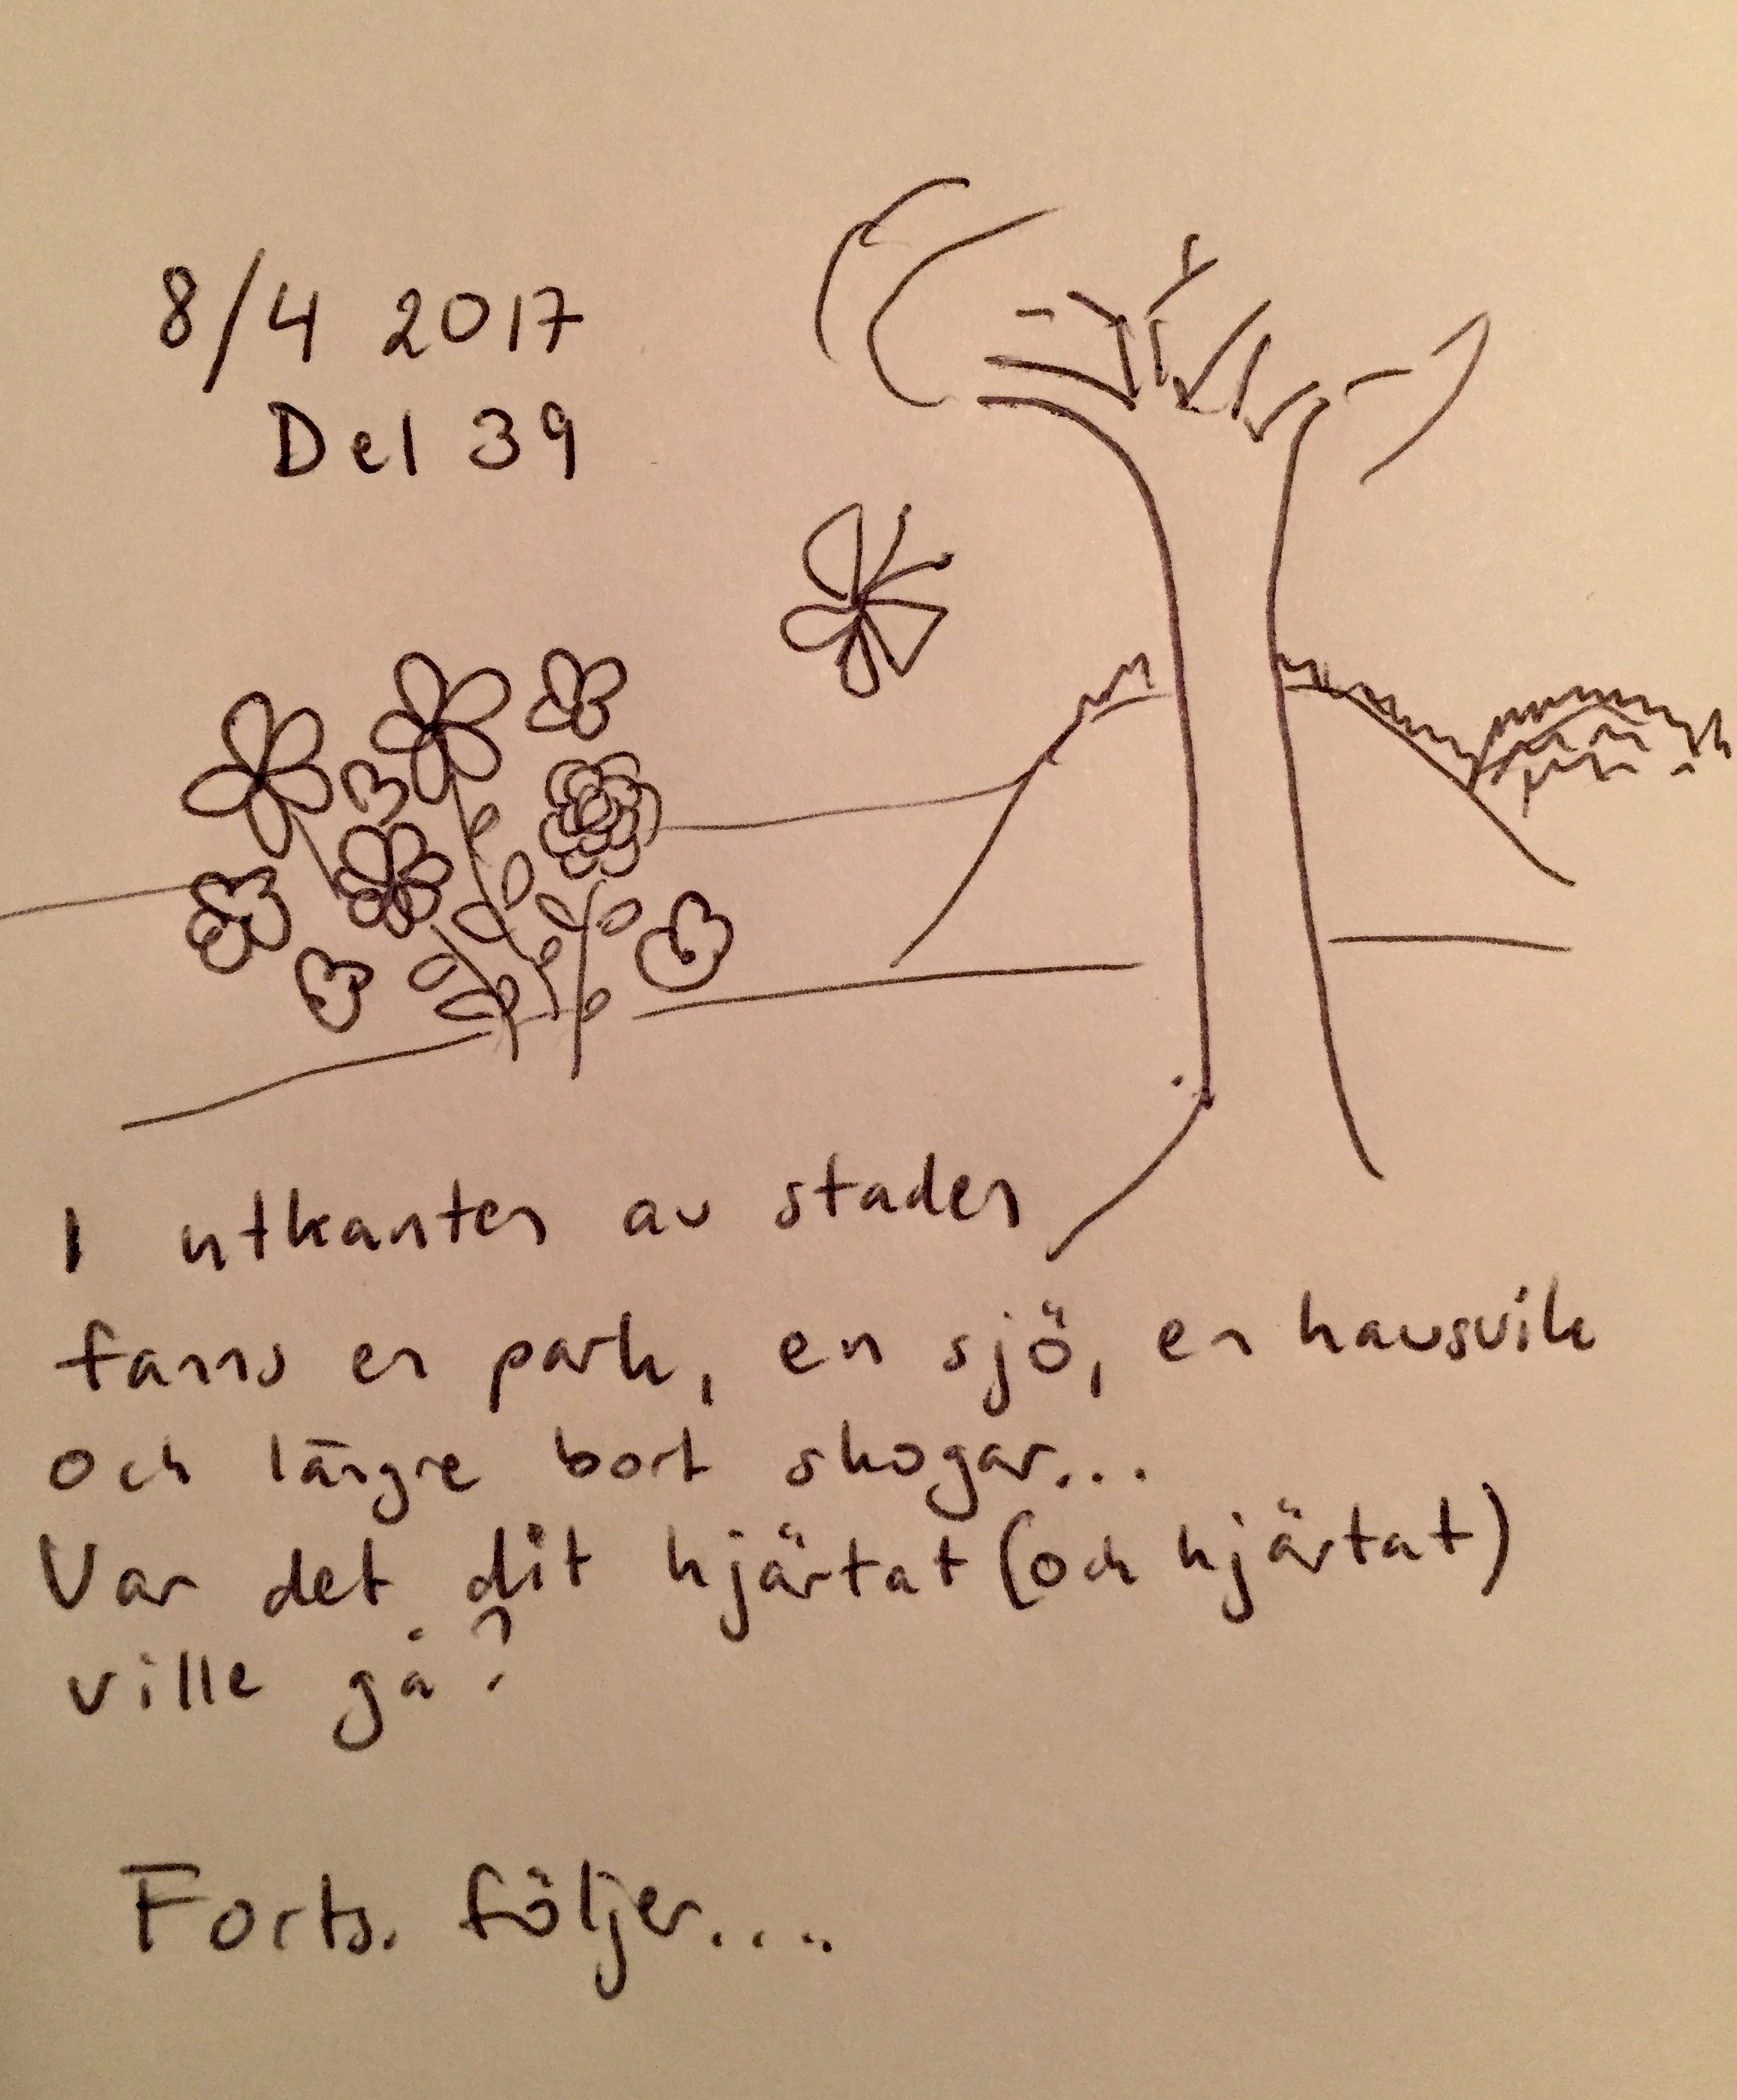 8/4 2017
Del 39
I utkanten av staden
fanns en park, en sjö, en havsvik
och längre bort skogar...
Var det dit hjärtat (och hjärtat)
ville gå?
Forts. följer....